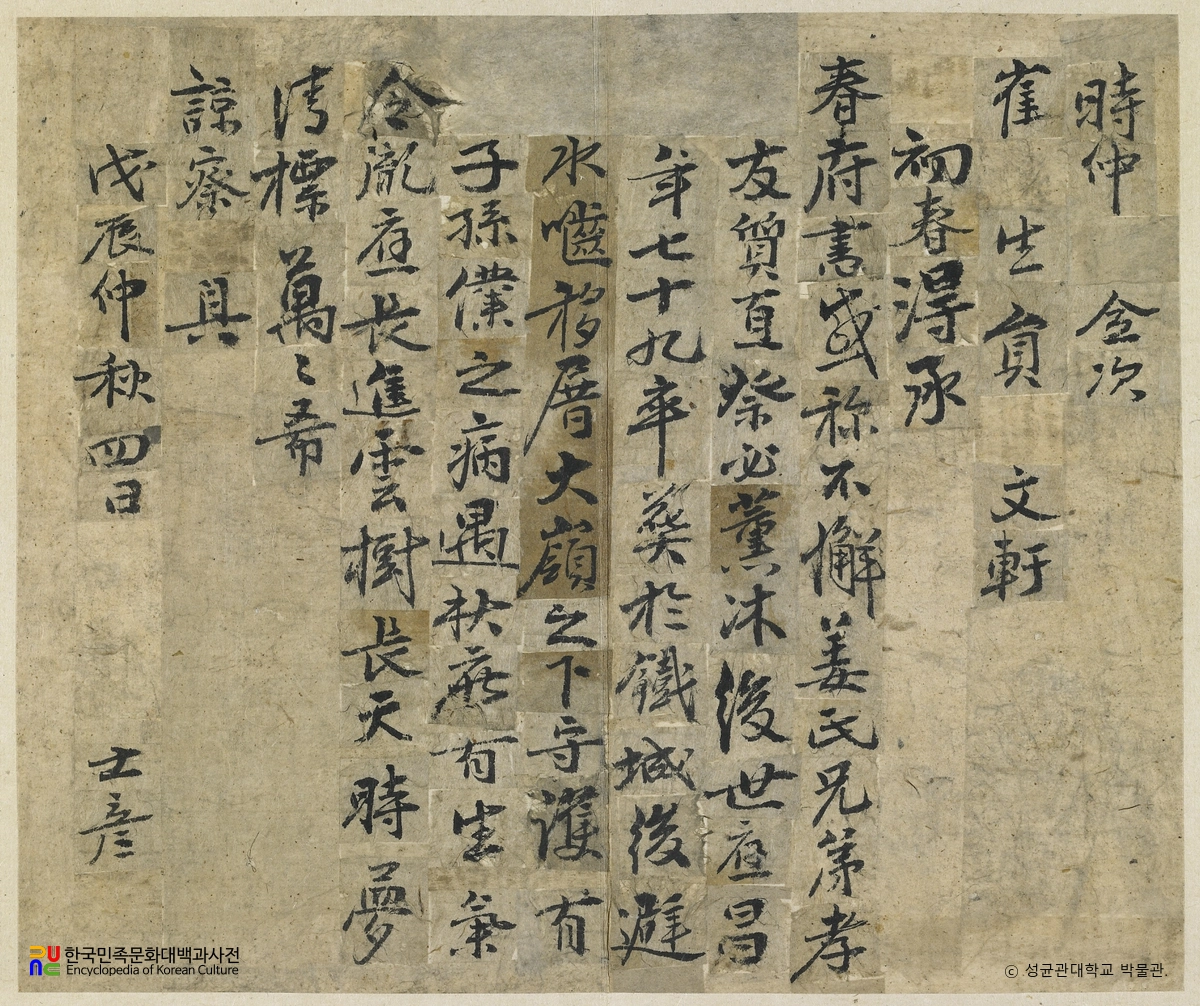 時仲 金次
崔 生員 文軒
初春得承
春府書感称不懈姜氏兄弟孝
友質直祭必薰沐後世應昌
年七十九卒葬於鐵城後避
水嚙移厝大嶺之下守護有
子孫僕之病遇秋無有生氣
令胤應長進雲樹長天時夢
清標萬〻希
諒察 具
戊辰仲秋四日 士彦
한국민족문화대백과사전
Encyclopedia of Korean Culture
ⓒ 성균관대학교 박물관.